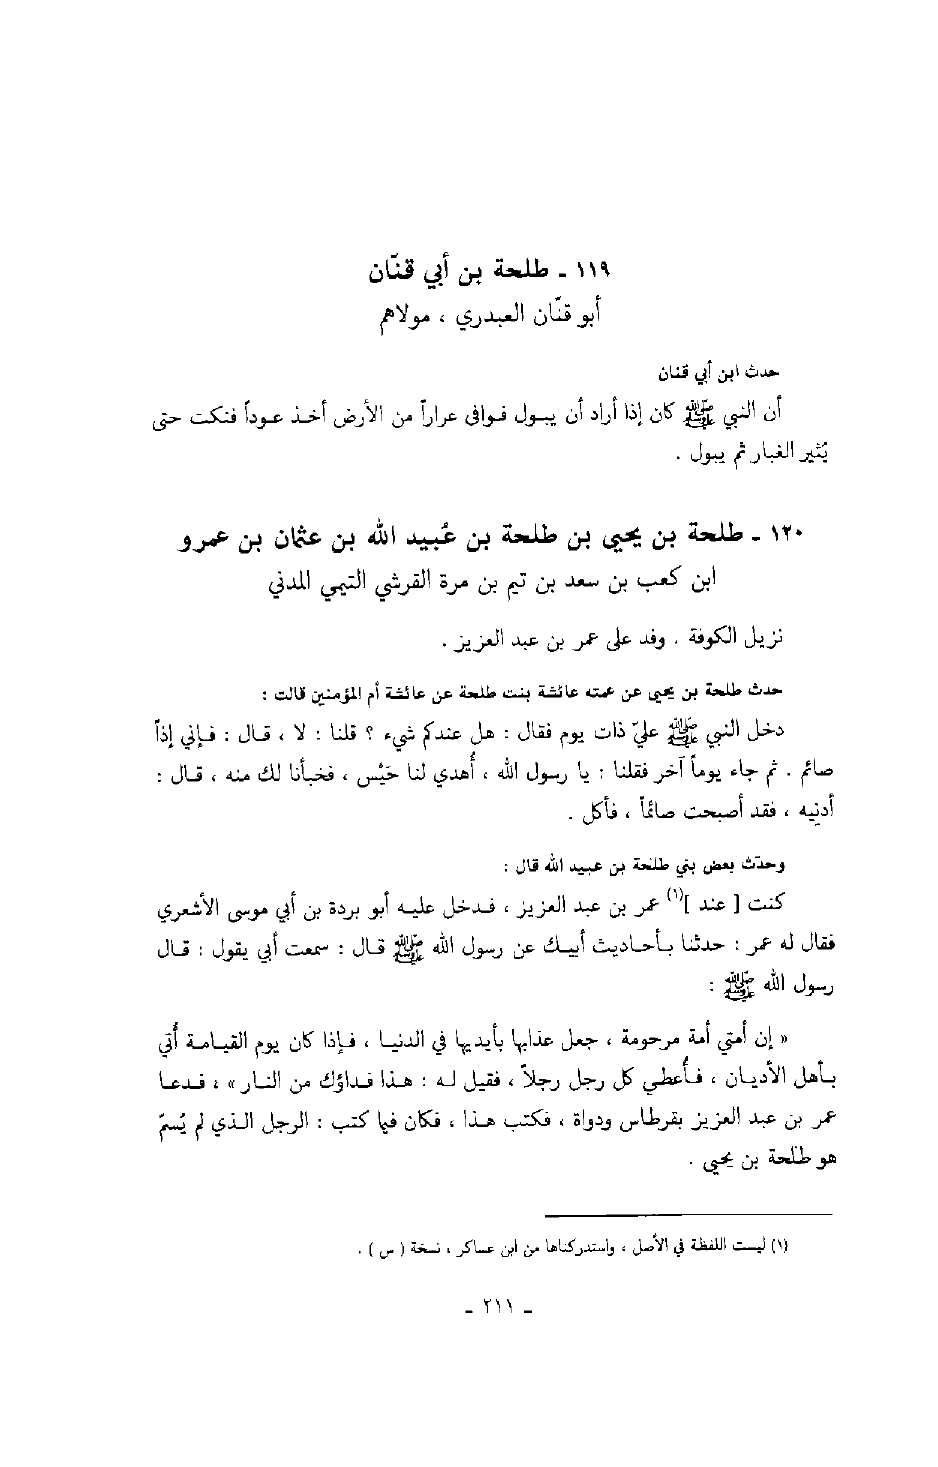 ١١٩ - طلحة بن أبي قنّان
أبو قنّان العبدري ، مولاهم
حدث ابن أبي قنان
أن النبي ﷺ كان إذا أراد أن يبول فوافى عرازاً من الأرض أخذ عوداً فنكت حتى
يُثير الغبار ثم يبول .
١٢٠ - طلحة بن يحيى بن طلحة بن عُبيد الله بن عثمان بن عمرو
ابن كعب بن سعد بن تيم بن مرة القرشي التيمي المدني
نزيل الكوفة . وفد على عمر بن عبد العزيز .
حدث طلحة بن يحيى عن عمته عائشة بنت طلحة عن عائشة أم المؤمنين قالت :
دخل النبي ﷺ عليّ ذات يوم فقال : هل عندكم شيء ؟ قلنا : لا ، قال : فإني إذاً
صائم . ثم جاء يوماً آخر فقلنا : يا رسول الله ، أُهدي لنا حَيْس ، فخبأنا لك منه ، قال :
أدنِيه ، فقد أصبحت صائماً ، فأكل .
وحدّث بعض بني طلحة بن عبيد الله قال :
كنت [ عند ](١) عمر بن عبد العزيز ، فدخل عليه أبو بردة بن أبي موسى الأشعري
فقال له عمر : حدثنا بأحاديث أبيك عن رسول الله ﷺ قال : سمعت أبي يقول : قال
رسول الله ﷺ :
« إن أمتي أمة مرحومة ، جعل عذابها بأيديها في الدنيا ، فإذا كان يوم القيامة أُتي
بأهل الأديان ، فأُعطي كل رجل رجلاً ، فقيل له : هذا فداؤك من النار » ، فدعا
عمر بن عبد العزيز بقرطاس ودواة ، فكتب هذا ، فكان فيما كتب : الرجل الذي لم يُسمّ
هو طلحة بن يحيى .
(١) ليست اللفظة في الأصل ، واستدركناها من ابن عساكر ، نسخة ( س ) .
- ٢١١ -